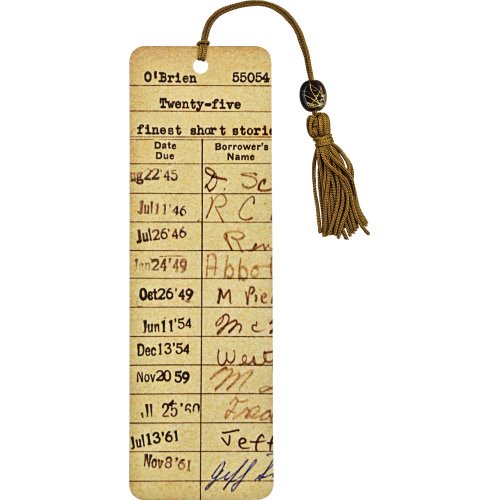 O'Brien 55054
Twenty-five
finest short storie
Date Due Borrower's Name
ug 22'45 D. Sc
Jul 11'46 R C
Jul 26'46 Ren
Jan 24'49 Abbot
Oct 26'49 M Pie
Jun 11'54 Mc
Dec 13'54 West
Nov 20 59 M
Jl 25'60
Jul 13'61 Jeff
Nov 8'61 Jeff S